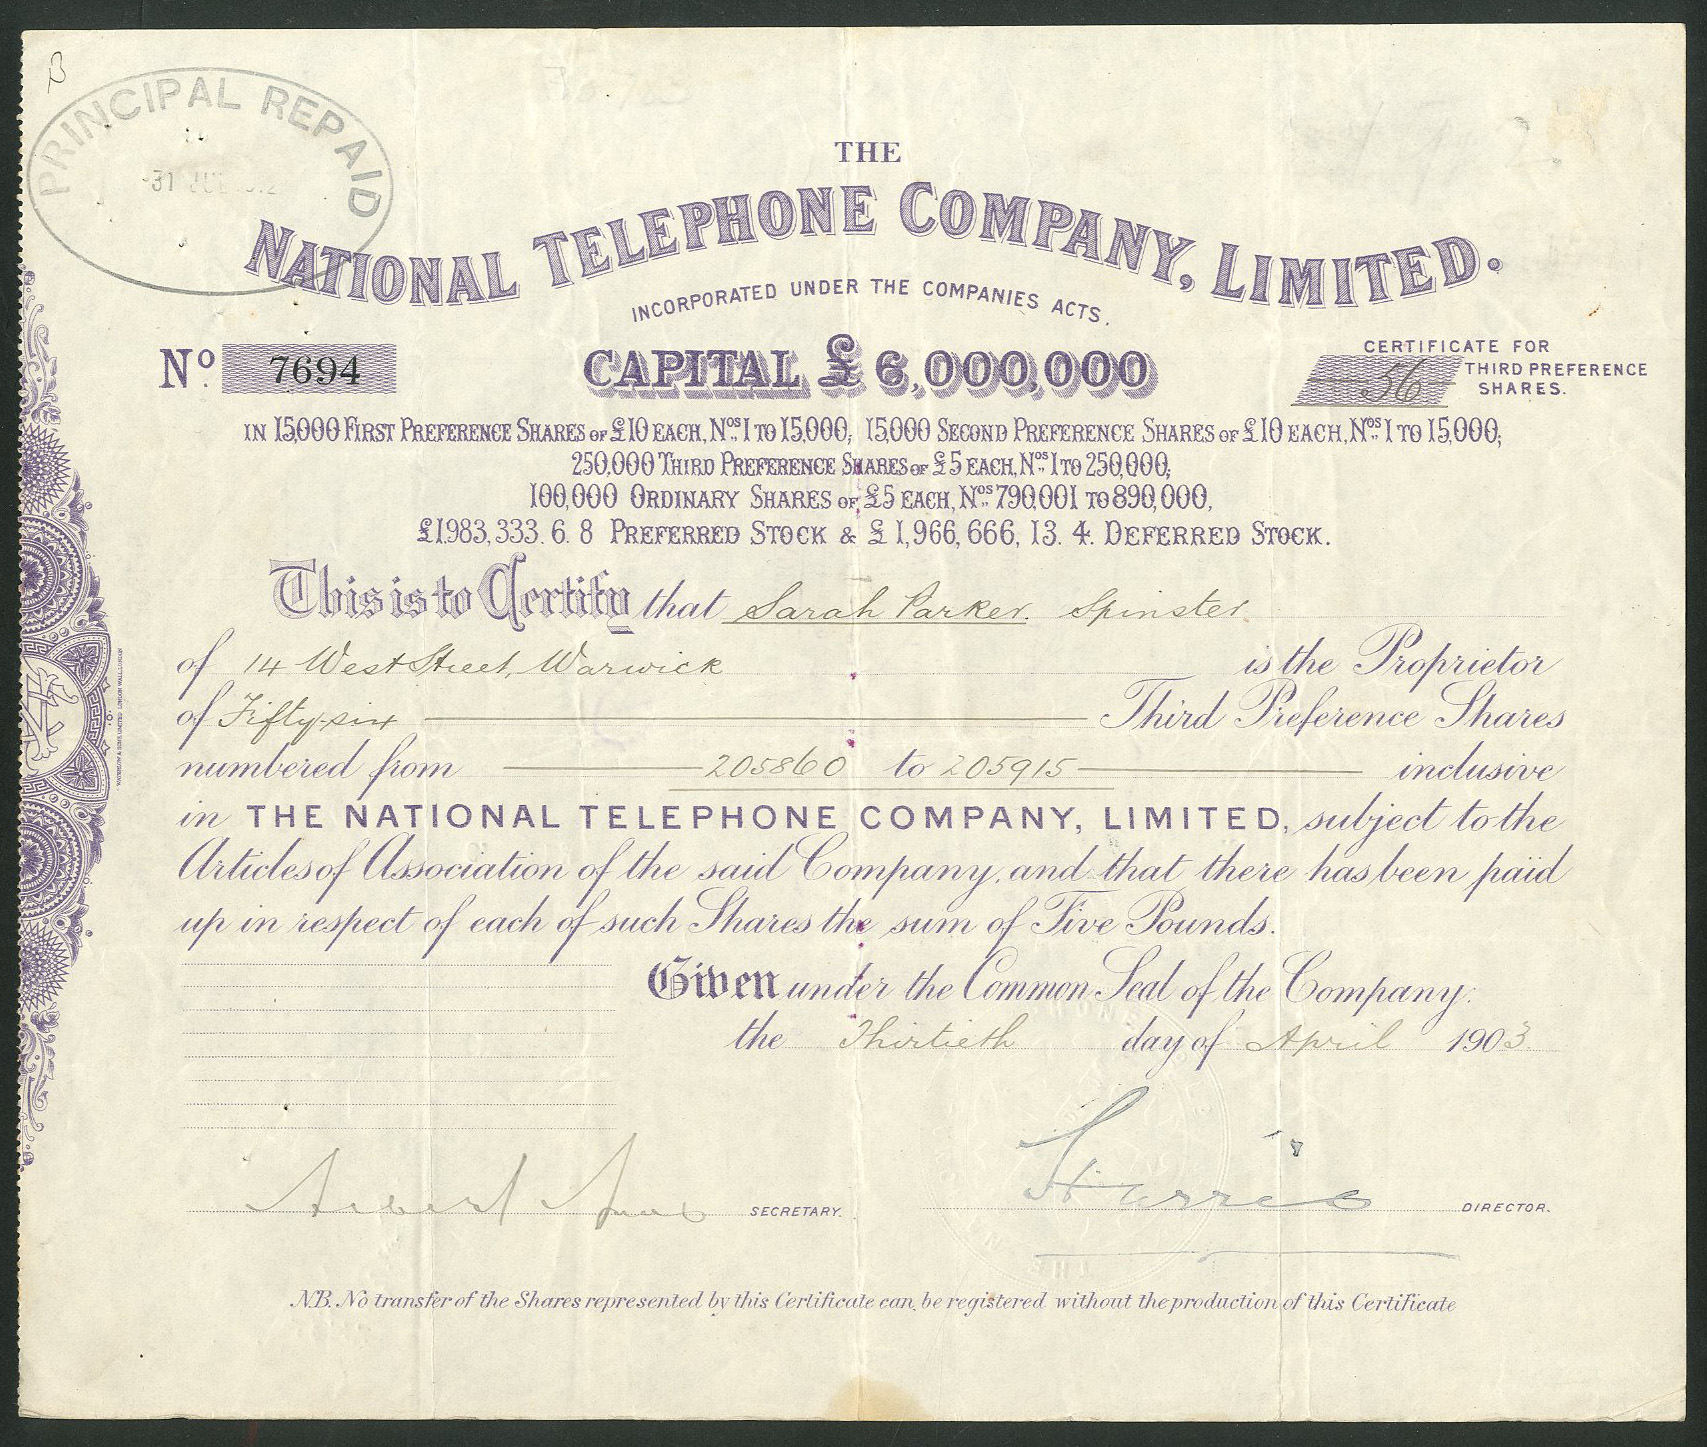 PRINCIPAL REPAID
31 JUL
THE
NATIONAL TELEPHONE COMPANY, LIMITED.
INCORPORATED UNDER THE COMPANIES ACTS.
No. 7694
CAPITAL £6,000,000
CERTIFICATE FOR
56 THIRD PREFERENCE
SHARES.
IN 15,000 FIRST PREFERENCE SHARES OF £10 EACH, Nos. 1 TO 15,000; 15,000 SECOND PREFERENCE SHARES OF £10 EACH, Nos. 1 TO 15,000;
250,000 THIRD PREFERENCE SHARES OF £5 EACH, Nos. 1 TO 250,000;
100,000 ORDINARY SHARES OF £5 EACH, Nos. 790,001 TO 890,000,
£1,983,333. 6. 8 PREFERRED STOCK & £1,966,666, 13. 4. DEFERRED STOCK.
This is to Certify that Sarah Parker. Spinster
of 14 West Street, Warwick is the Proprietor
of Fifty six Third Preference Shares
numbered from 205860 to 205915 inclusive
in THE NATIONAL TELEPHONE COMPANY, LIMITED, subject to the
Articles of Association of the said Company, and that there has been paid
up in respect of each of such Shares the sum of Five Pounds.
Given under the Common Seal of the Company.
the Thirtieth day of April 1903.
Albert SECRETARY.
DIRECTOR.
N.B. No transfer of the Shares represented by this Certificate can be registered without the production of this Certificate
WATERLOW & SONS LIMITED LONDON WALL, LONDON